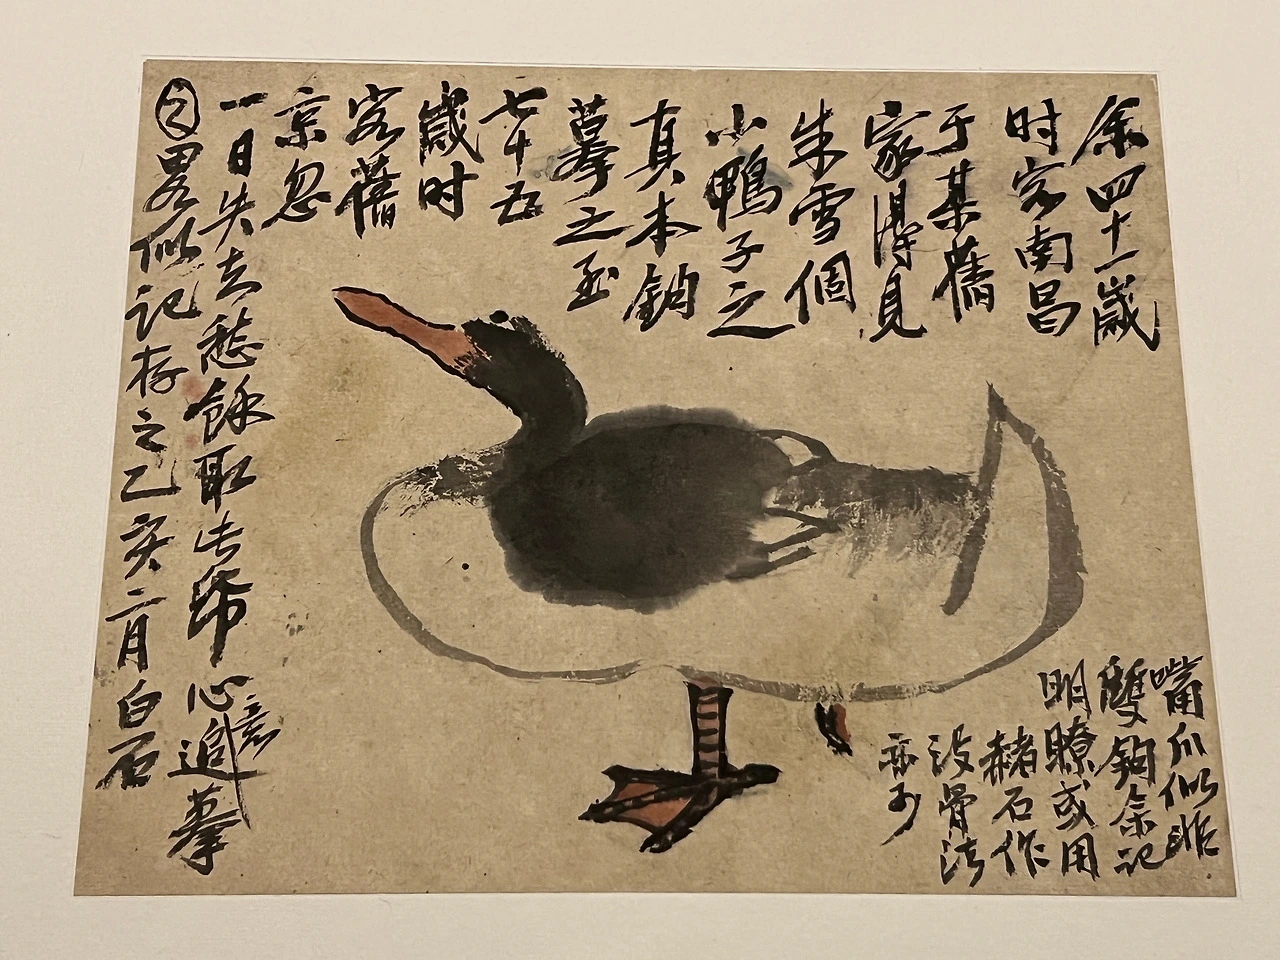 余四十一歲
时客南昌
于某舊
家得見
朱雪個
小鴨子之
真本鈎
摹之至
七十五
歲时
客舊
京忽
一日失去愁餘取此紙心意追摹
之畧似記存之乙亥二月白石
嘴爪似非
雙鉤余記
明瞭或用
赭石作
沒骨法
亦可